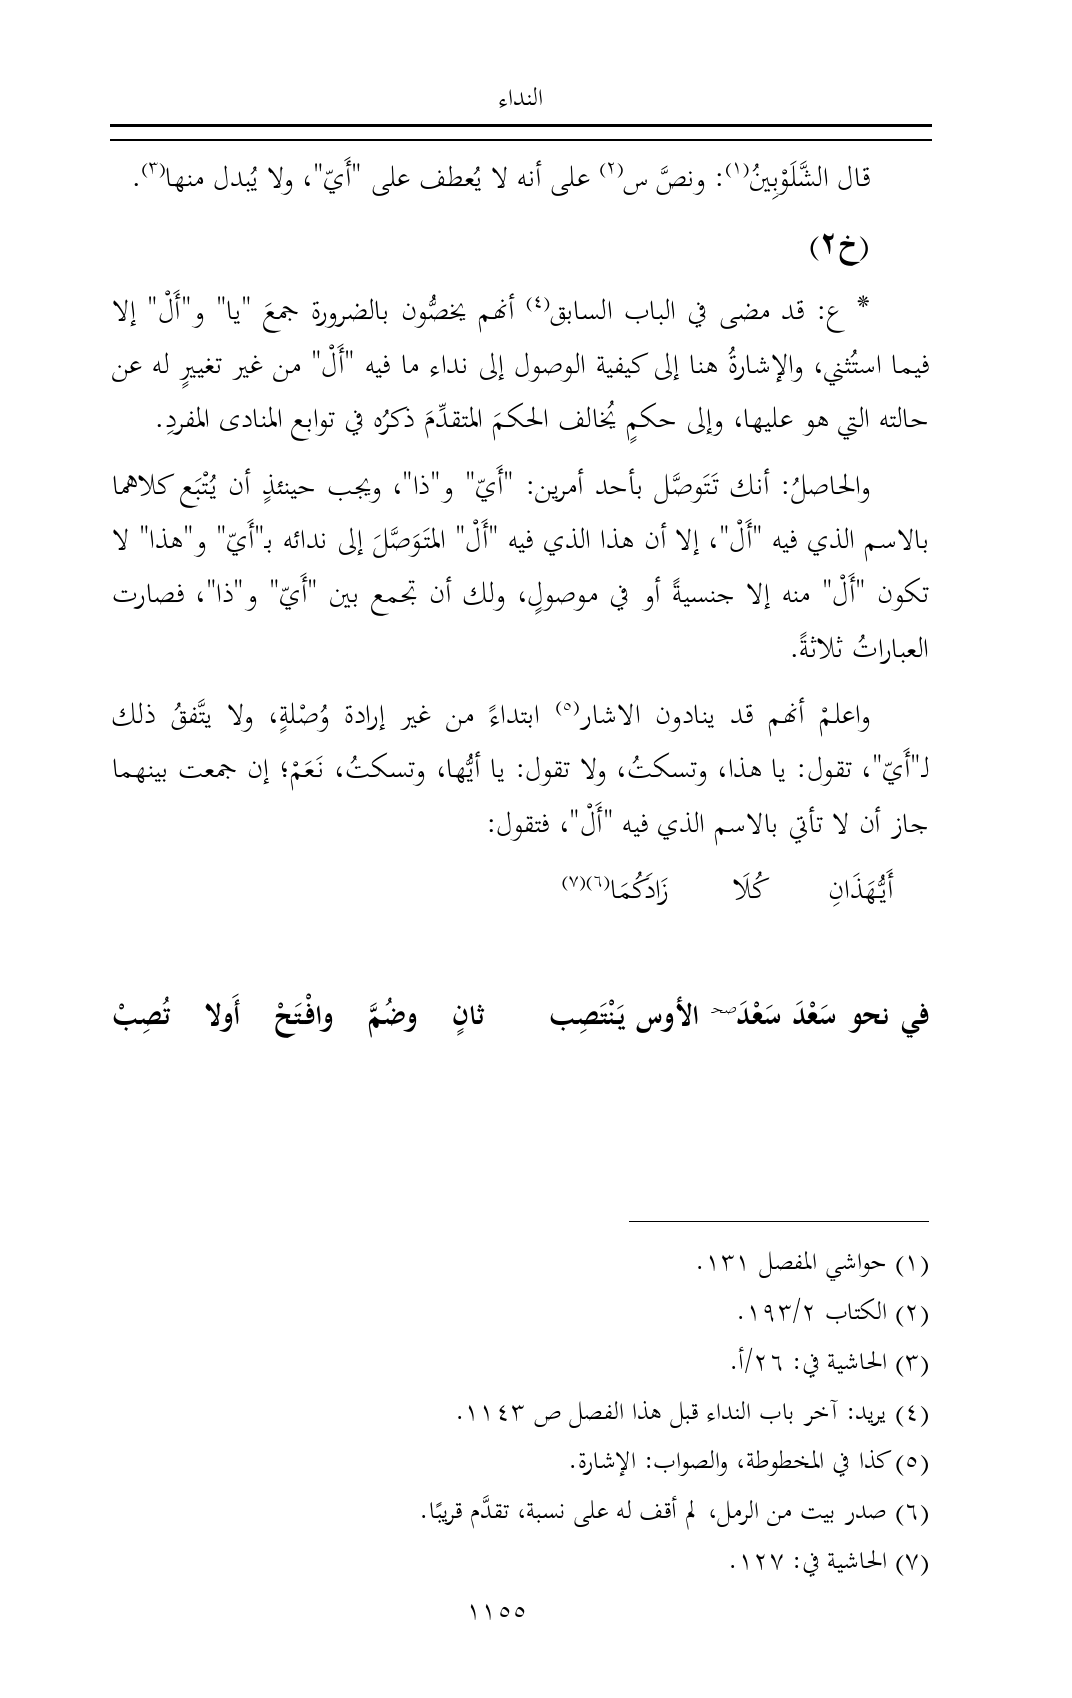 النداء
قال الشَّلَوْبِينُ(١): ونصَّ س(٢) على أنه لا يُعطف على "أَيّ"، ولا يُبدل منها(٣).
(خ٢)
* ع: قد مضى في الباب السابق(٤) أنهم يخصُّون بالضرورة جمعَ "يا" و"أَلْ" إلا
فيما استُثني، والإشارةُ هنا إلى كيفية الوصول إلى نداء ما فيه "أَلْ" من غير تغييرٍ له عن
حالته التي هو عليها، وإلى حكمٍ يُخالف الحكمَ المتقدِّمَ ذكرُه في توابع المنادى المفردِ.
والحاصلُ: أنك تَتَوصَّل بأحد أمرين: "أَيّ" و"ذا"، ويجب حينئذٍ أن يُتْبَع كلاهما
بالاسم الذي فيه "أَلْ"، إلا أن هذا الذي فيه "أَلْ" المتَوَصَّلَ إلى ندائه بـ"أَيّ" و"هذا" لا
تكون "أَلْ" منه إلا جنسيةً أو في موصولٍ، ولك أن تجمع بين "أَيّ" و"ذا"، فصارت
العباراتُ ثلاثةً.
واعلمْ أنهم قد ينادون الاشار(٥) ابتداءً من غير إرادة وُصْلةٍ، ولا يتَّفقُ ذلك
لـ"أَيّ"، تقول: يا هذا، وتسكتُ، ولا تقول: يا أيُّها، وتسكتُ، نَعَمْ؛ إن جمعت بينهما
جاز أن لا تأتي بالاسم الذي فيه "أَلْ"، فتقول:
أَيُّهَذَانِ كُلَا زَادَكُمَا(٦)(٧)
في نحو سَعْدَ سَعْدَصح الأوس يَنْتَصِب ثانٍ وضُمَّ وافْتَحْ أَولا تُصِبْ
(١) حواشي المفصل ١٣١.
(٢) الكتاب ١٩٣/٢.
(٣) الحاشية في: ٢٦/أ.
(٤) يريد: آخر باب النداء قبل هذا الفصل ص ١١٤٣.
(٥) كذا في المخطوطة، والصواب: الإشارة.
(٦) صدر بيت من الرمل، لم أقف له على نسبة، تقدَّم قريبًا.
(٧) الحاشية في: ١٢٧.
١١٥٥